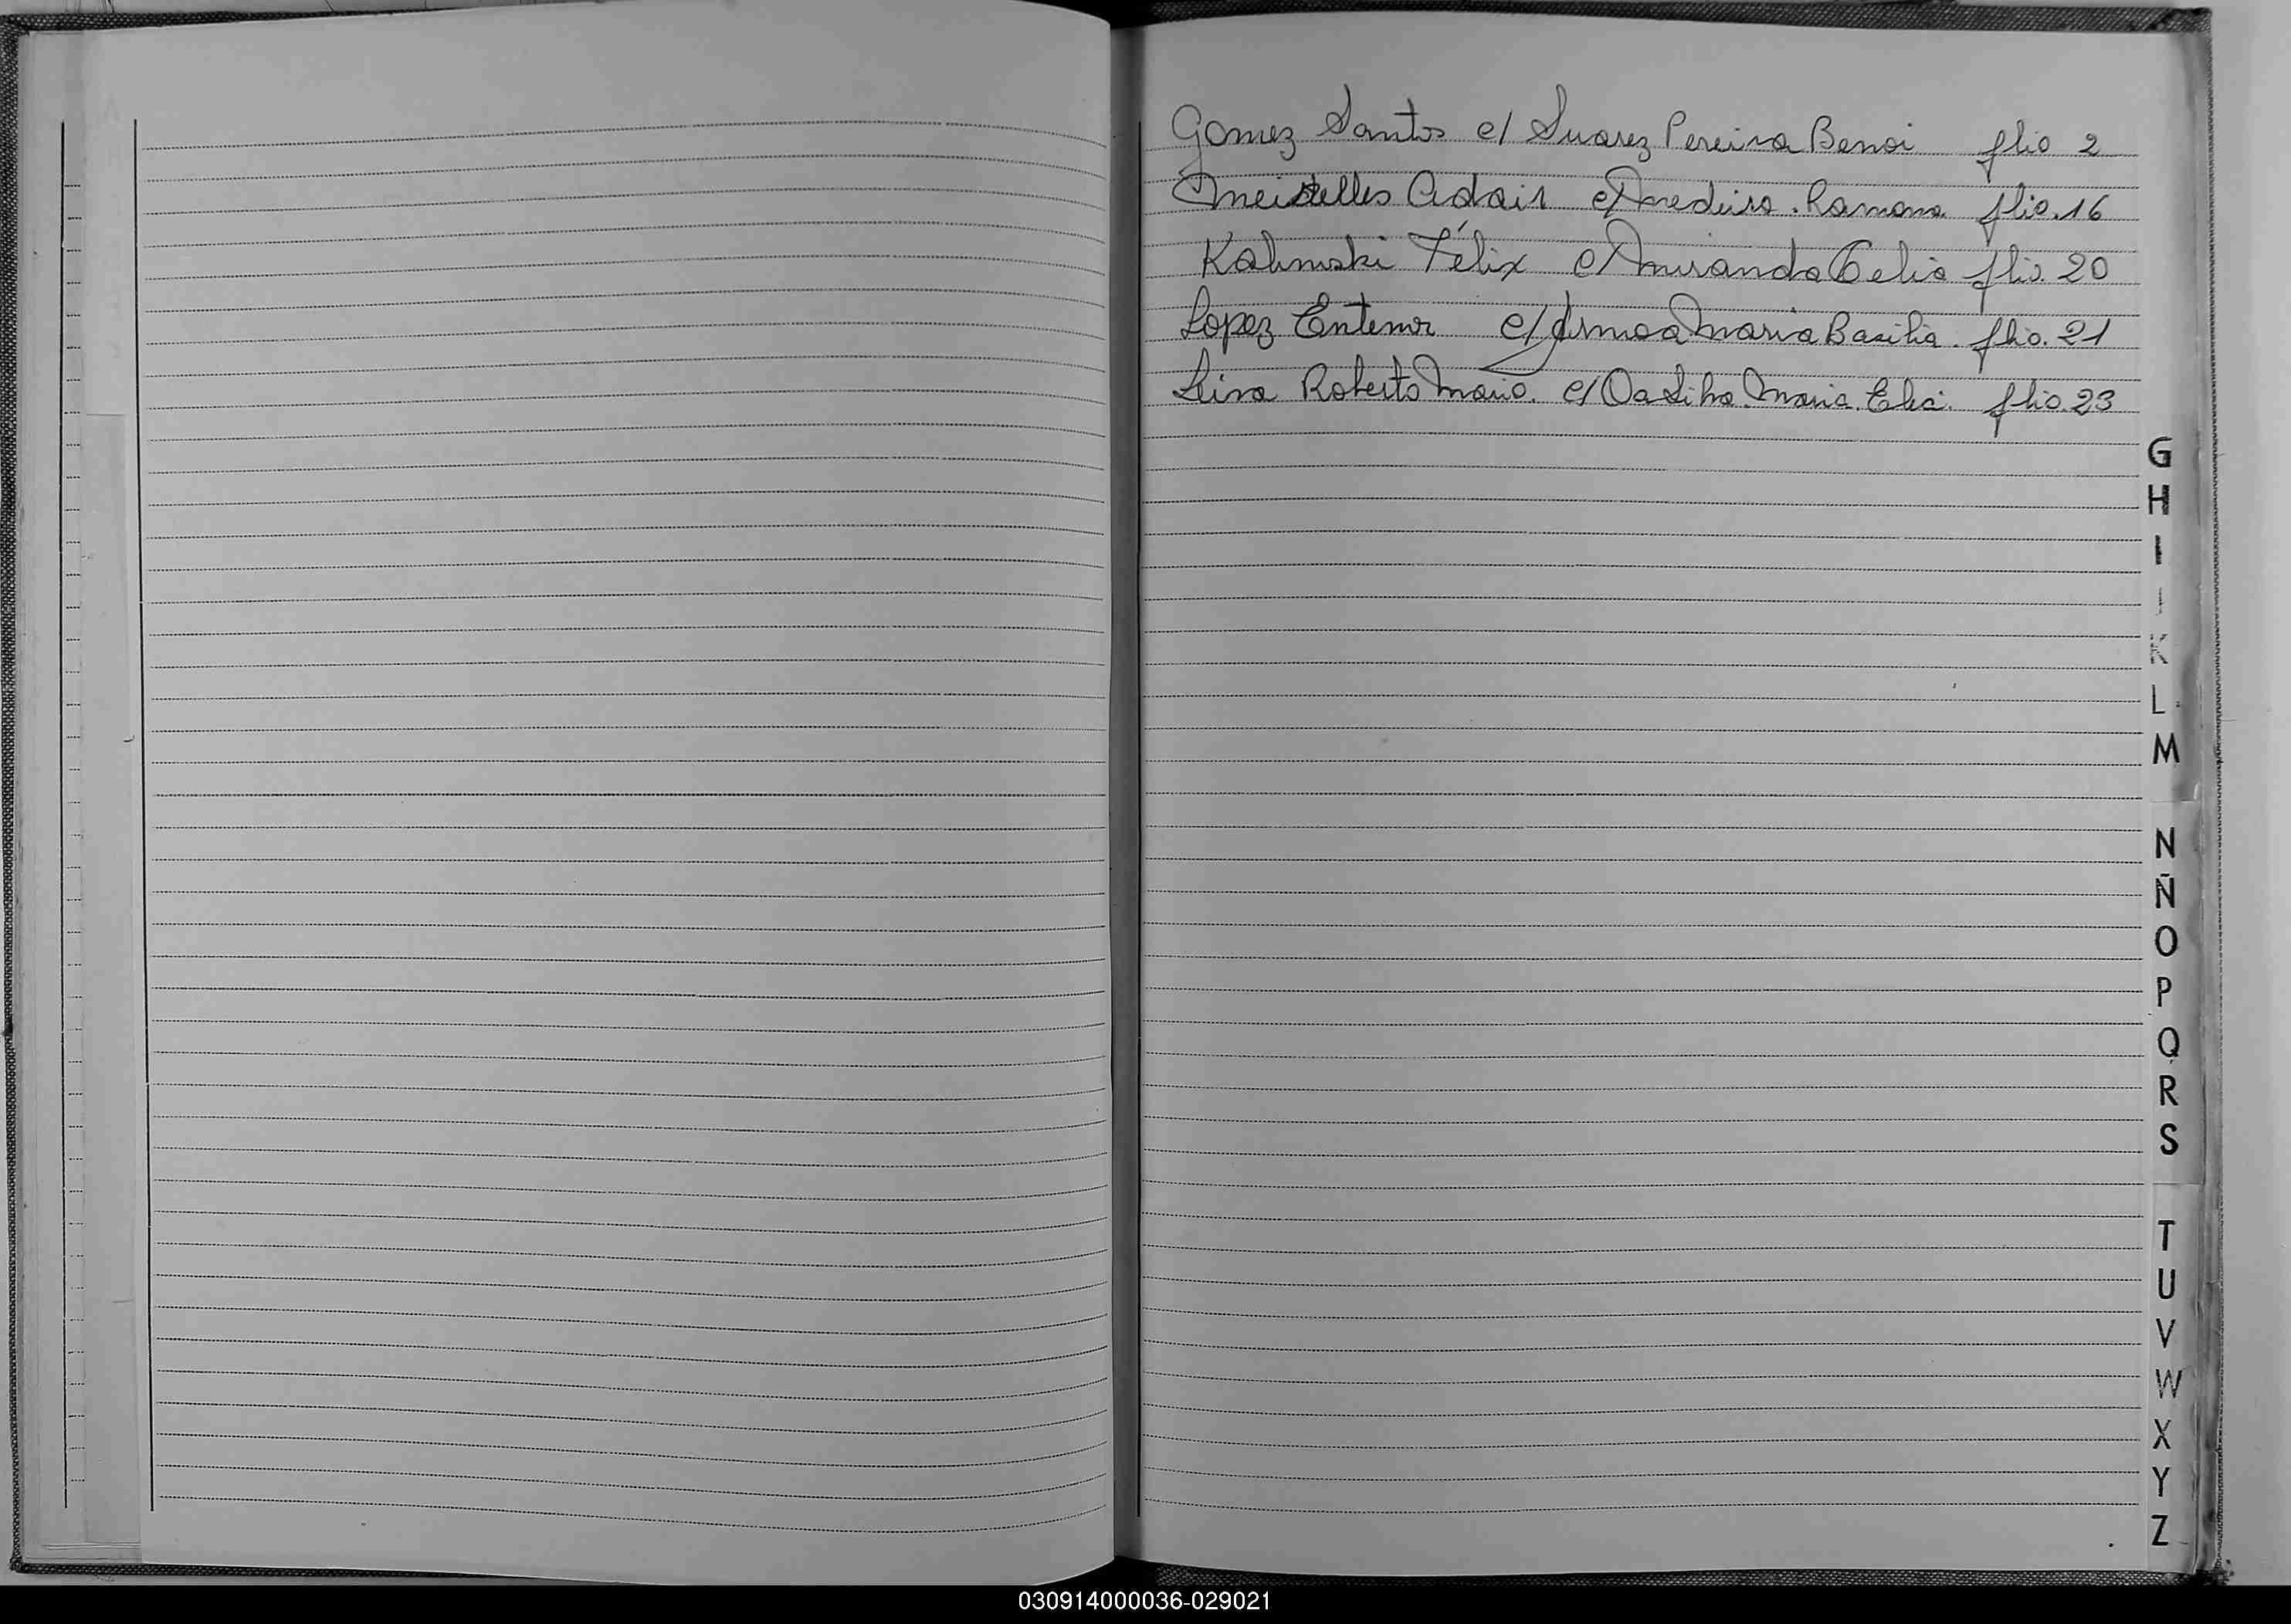 Gomez Santos c/ Suarez Pereira Benoi flio 2
Meirelles Adair c/ Medeiro. Ramona flio. 16
Kalinuski Félix c/ Miranda Celia flio. 20
Lopez Entemir c/ Maria Basilia. flio. 21
Leiva Roberto Mario. c/ Da Silva. Maria. flio. 23
G
H
I
J
K
L
M
N
Ñ
O
P
Q
R
S
T
U
V
W
X
Y
Z
030914000036-029021